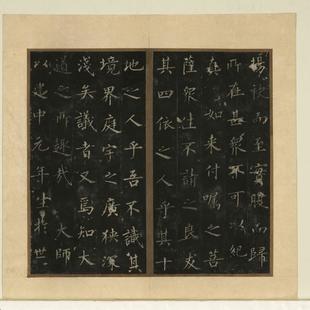 揚袂而至實腹而歸
所在甚眾不可以紀
真如來付囑之菩
薩眾生不請之良友
其四依之人乎其十
地之人乎吾不識其
境界庭宇之廣狹深
淺矣議者又焉知大
道之所趣哉大師
以建中元年生於世